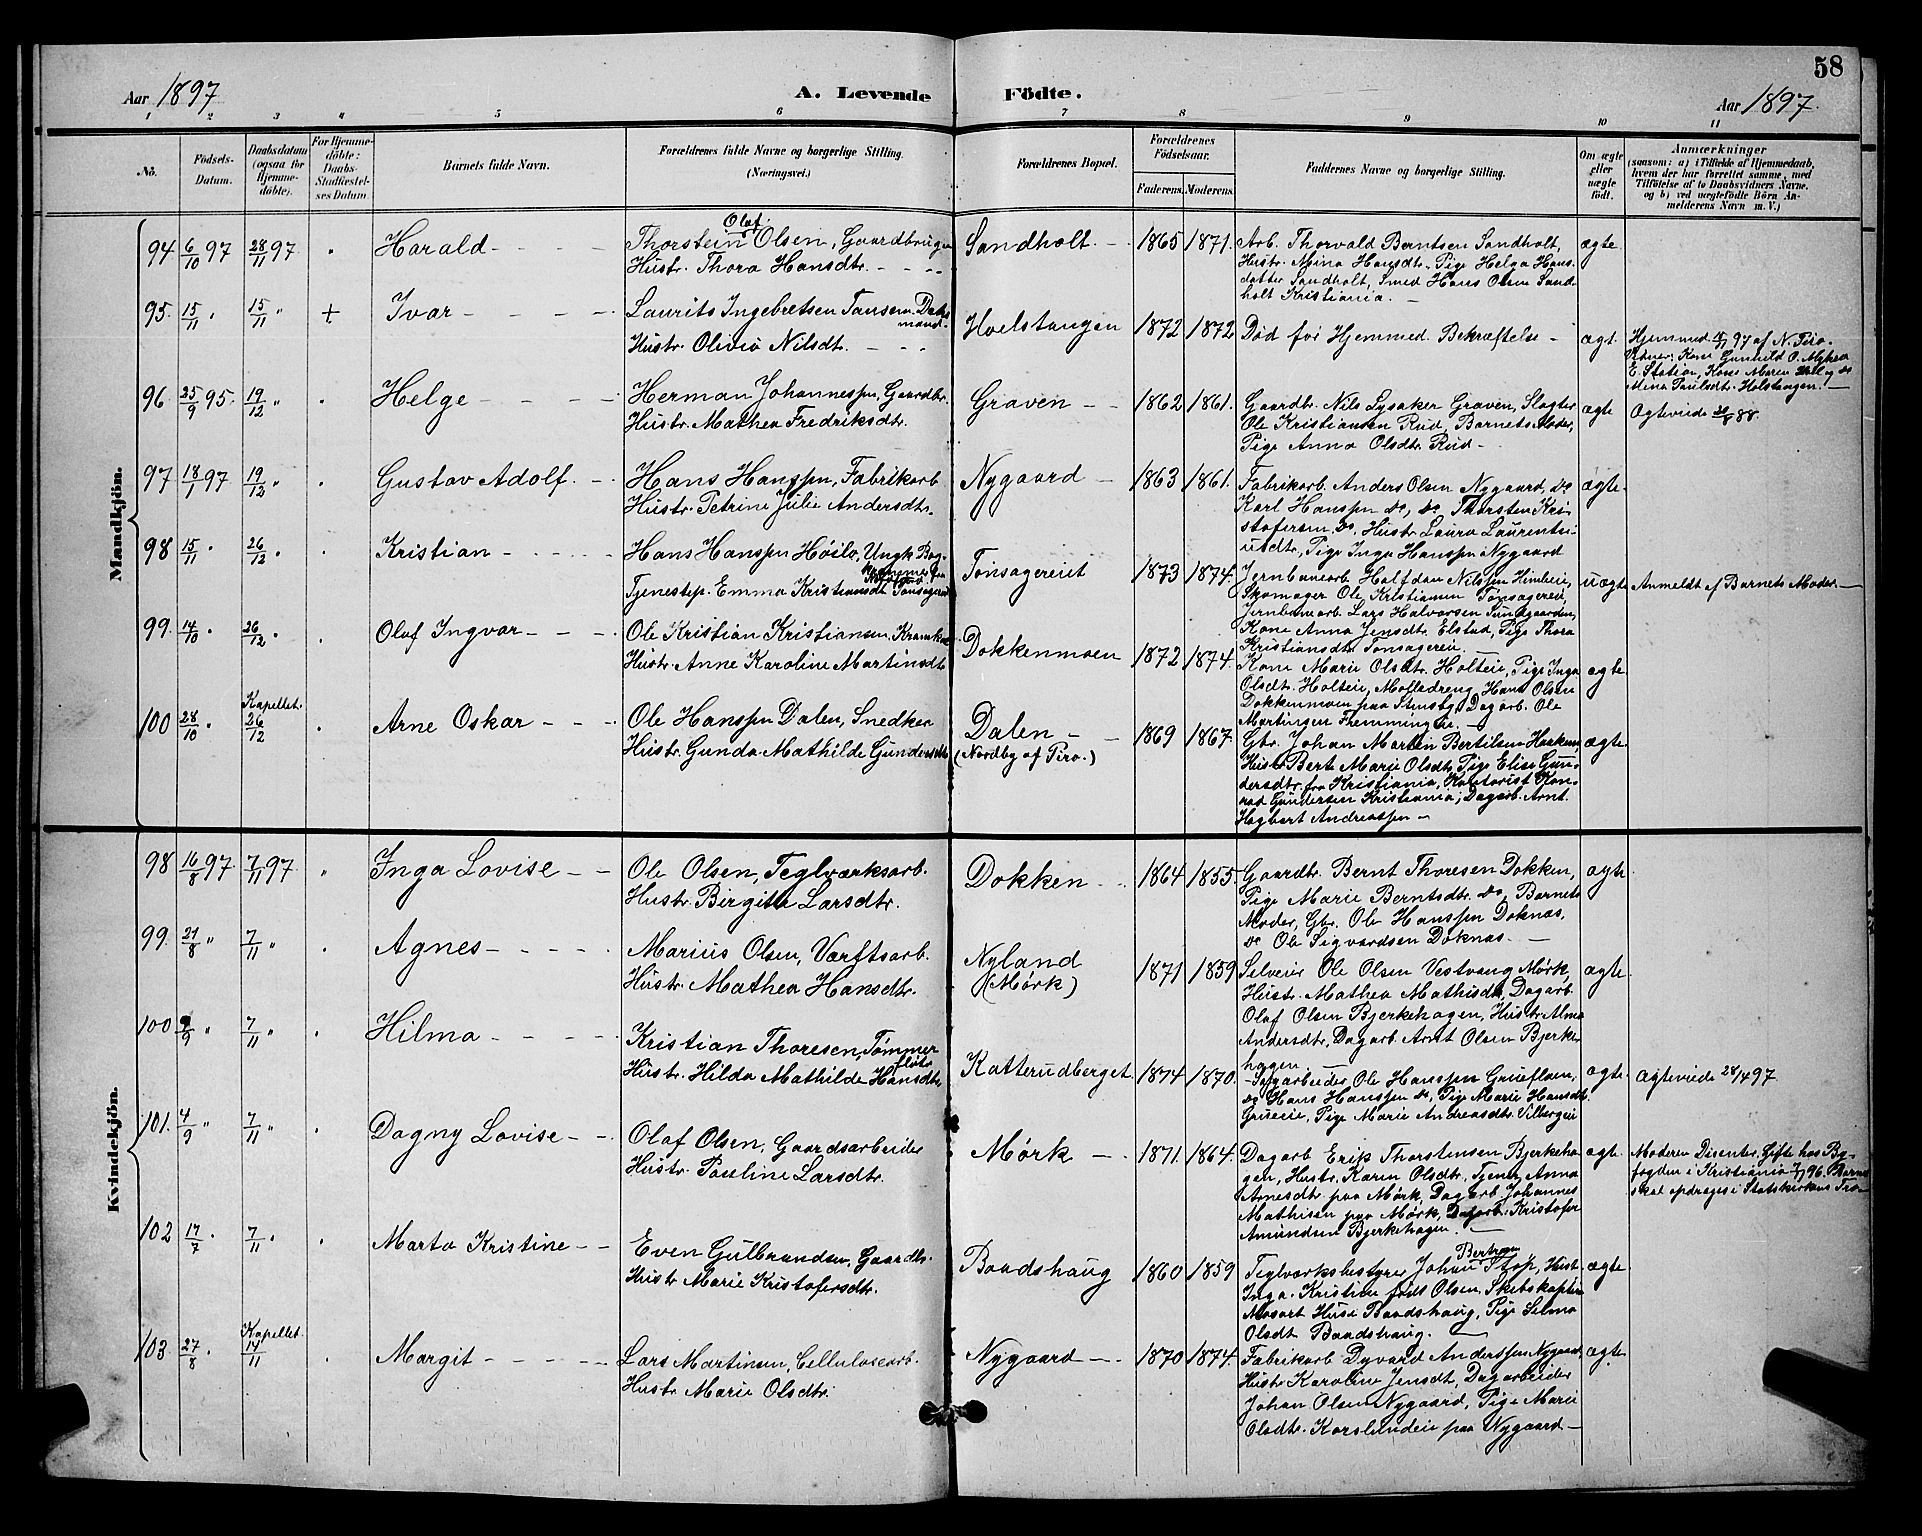 58
Aar 1897
A. Levende Födte.
Aar 1897.
1 2 3 4 5 6 7 8 9 10 11
No.
Födsels-Datum.
Daabsdatum (ogsaa for Hjemme-döbte).
For Hjemme-döbte: Daabs-Stadfæstel-ses Datum
Barnets fulde Navn.
Forældrenes fulde Navne og borgerlige Stilling. (Næringsvei.)
Forældrenes Bopæl.
Forældrenes Födselsaar.
Faderens. Moderens.
Faddernes Navne og borgerlige Stilling.
Om ægte eller uægte födt.
Anmærkninger
(saasom: a) i Tilfælde af Hjemmedaab,
hvem der har forrettet samme, med
Tilföielse af to Daabsvidners Navne.
og b) ved uægtefödte Börn An-
melderens Navn m. V.)
Mandkjön.
94 6/10 97 28/11 97 Harald
Thorstein Olaf Olsen, Gaardbruger
Hustr. Thora Hansdtr.
Sandholt. 1865 1871.
Arb. Thorvald Berntsen Sandholt,
Hustr. Mina Hansdtr. Pige Helga Hans-
datter Sandholt, Smed Hans Olsen Sand-
holt Kristiania.
ægte
95. 15/11 " 15/11 " + Ivar
Laurits Ingebretsen
Hustr. Olivia Nilsdt.
Holstangen 1872 1872
Död för Hjemmed. Bekræftelse
ægt.
Hjemmed 15/11 97 af N. Tiro.
E. Station, Kone Maren
Mina Paulsdt. Holstangen.
96. 25/9 95. 19/12 " Helge
Herman Johannessen, Gaardbr.
Hustr. Mathea Fredriksdtr.
Graven 1862 1861.
Gaardbr. Nils Lysaker Graven, Slagter
Ole Kristiansen Rud, Barnets Moder,
Pige Anna Olsdtr. Rud
ægte
Ægteviede 88.
97 18/1 97 19/12 " Gustav Adolf.
Hans Hanssen, Fabrikarb
Hustr. Petrine Julie Andersdtr.
Nygaard 1863 1861.
Fabrikarb. Anders Olsen Nygaard, do
Karl Hanssen do, do Thorsten Kri-
stofersen do, Hustr Laura Laurenti-
usdtr, Pige Inga Hanssen Nygaard
ægte.
98 15/11 " 26/12 " Kristian
Hans Hanssen Höilo, Ungk.
Tjenestep. Emma Kristiansdt Tonsagereiet
Tonsagereiet 1873 1874.
Jernbanearb Halfdan Nilssen
Skomager Ole Kristiansen Tonsagereie,
Jernbanearb. Lars Halvorsen
Kone Anna Jensdtr. Elstad, Pige Thora
Kristiansdt. Tonsagereie.
uægte
Anmeldt af Barnets Moder.
99. 14/10 " 26/12 " Olaf Ingvar
Ole Kristian Kristiansen,
Hustr. Anne Karoline Martinsdtr
Dokkenmoen 1872 1874.
Kone Marie Olsdtr. Holteie, Pige Inga
Olsdt. Holteie, Hans Olsen
Dokkenmoen paa Stensby, Dagarb. Ole
Martinsen
ægte
100 28/10 " Kapellet. 26/12 Arne Oskar
Ole Hanssen Dalen, Snedker
Hustr. Gunda Mathilde Gundersdtr
Dalen (Nordby af Tiro.) 1869 1867.
Gbr. Johan Martin Bertilsen
Hustr Bert Marie Olsdtr, Pige Elise Gun-
dersdtr. fra Kristiania, Kontorist Kon-
rad Gundersen Kristiania, Dagarb. Arnt
Hagbart Andreassen
ægte
Kvindekjön.
98 16/8 97 7/11 97 " Inga Lovise
Ole Olsen, Teglværksarb.
Hustr. Birgitte Larsdtr.
Dokken 1864 1855.
Gaardbr. Bernt Thoresen Dokken,
Pige Marie Berntsdtr. do, Barnets
Moder, Gbr. Ole Hanssen Doknæs,
do Ole Sigvardsen Doknæs.
ægte
99. 21/8 " 7/11 " Agnes
Marius Olsen, Værftsarb.
Hustr. Mathea Hansdtr.
Nyland (Mörk) 1871 1859
Selveier Ole Olsen Vestvang Mörk,
Hustr. Mathea Mathisdt, Dagarb.
Olaf Olsen Bjerkehagen, Hustr Alma
Andersdtr, Dagarb. Arnt Olsen Bjerke-
hagen
ægte.
100 /9 " 7/11 " Hilma
Kristian Thoresen, Tömmer
flöter
Hustr. Hilda Mathilde Hansdtr
Katterudberget. 1874 1870.
Dagarbeider Ole Hanssen
do Hans Hanssen do, Pige Marie Hansdtr.
Grueeie, Pige Marie Andreasdtr Vilbergeie
ægte.
Ægteviede 28/4 97
101. 4/9 " 7/11 " Dagny Lovise
Olaf Olsen, Gaardsarbeider
Hustr. Pauline Larsdtr.
Mörk 1871. 1864.
Dagarb Erik Thorstensen Bjerkeha-
gen, Hustr. Karen Olsdtr, Tjener Anna
Arnesdtr paa Mörk, Dagarb. Johannes
Mathisen paa Mörk, Dagarb. Kristofer
Amundsen Bjerkehagen.
ægte.
Moderen Dissenter. Gifte hos By-
fogden i Kristiania 96. Barnet
skal opdrages i Statskirkens Tro
102 17/7 " 7/11 " Marta Kristine
Even Gulbrandsen, Gaardbr.
Hustr Marie Kristofersdtr.
Baadshaug 1860 1859
Teglværksbestyrer Johan Bertram Hustr
Inga Kristine födt Olsen, Skibskaptein
Mosart Huse Baadshaug, Pige Selma
Olsdt Baadshaug.
ægte
103 27/8 " Kapellet. 14/11 Margit
Lars Martinsen, Cellulosearb.
Hustr Marie Olsdtr.
Nygaard 1870 1874.
Fabrikarb Andersen Nygaard,
Hustr Karoline Jensdt, Dagarbeider
Johan Olsen Nygaard, Pige Marie
Olsdtr. Korslundeie paa Nygaard
ægte